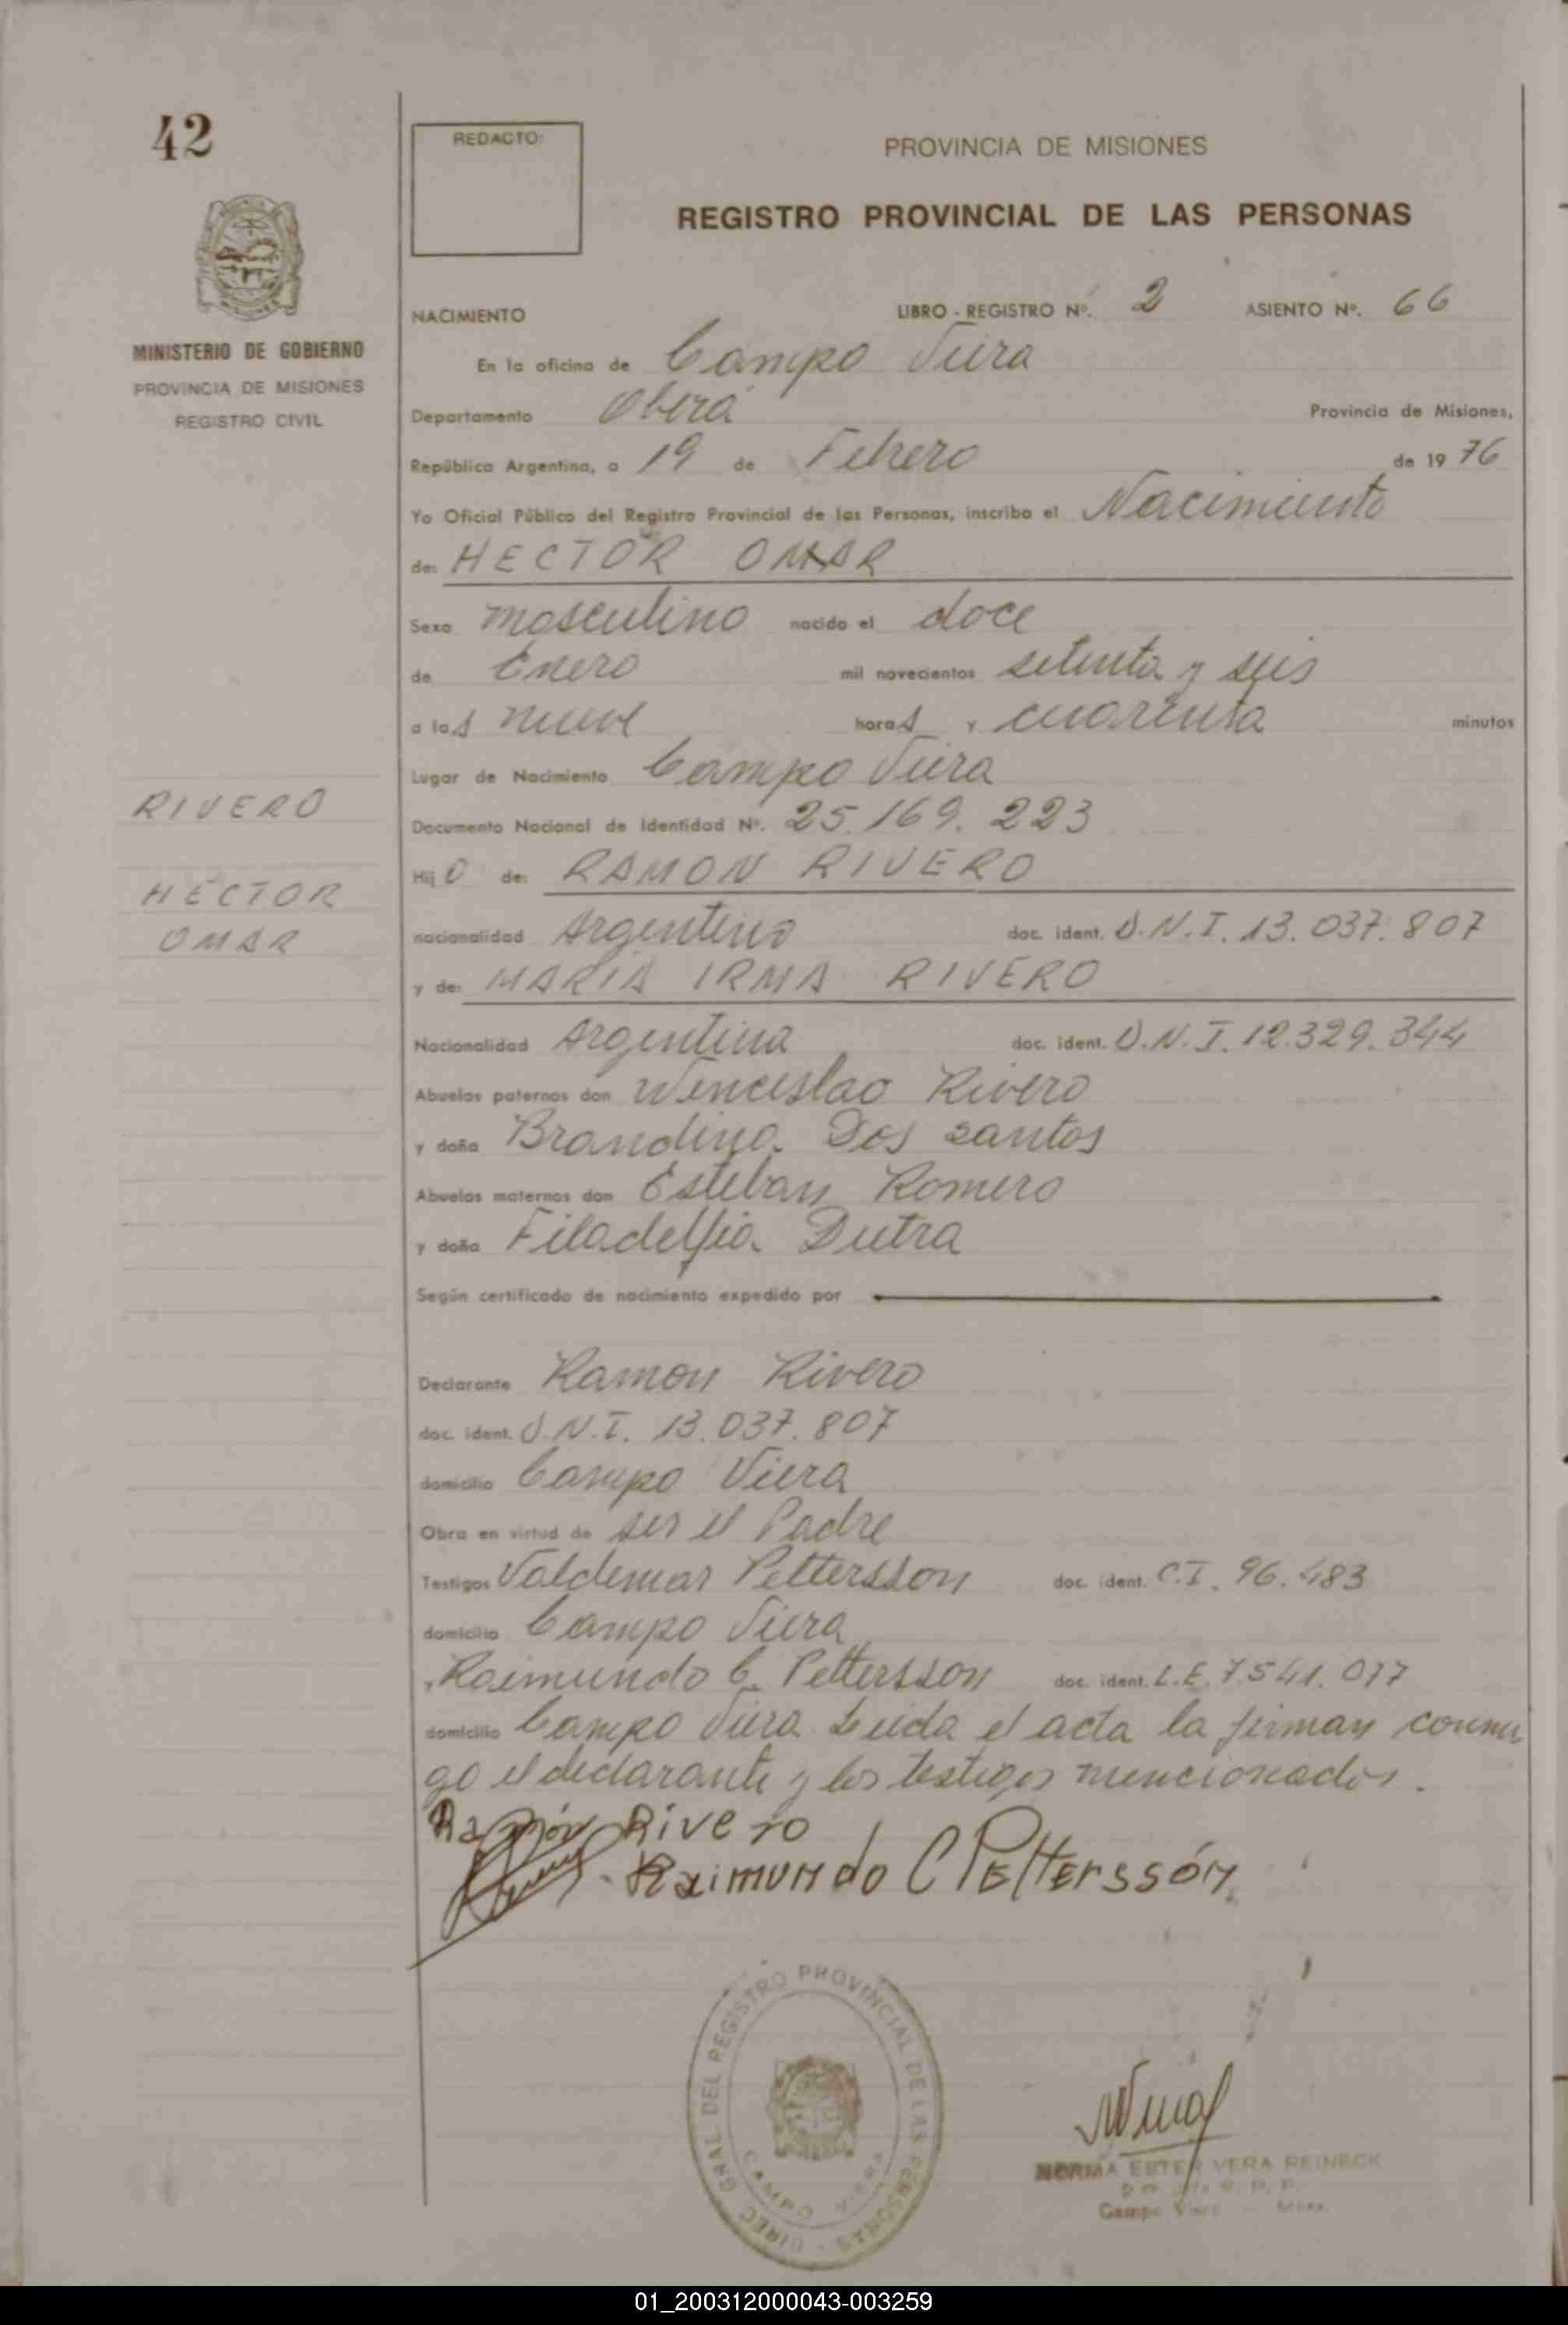 42
REDACTO:
PROVINCIA DE MISIONES
REGISTRO PROVINCIAL DE LAS PERSONAS
MINISTERIO DE GOBIERNO
PROVINCIA DE MISIONES
REGISTRO CIVIL
NACIMIENTO LIBRO - REGISTRO Nº. 2 ASIENTO Nº. 66
En la oficina de Campo Viera
Departamento Oberá Provincia de Misiones,
República Argentina, a 19 de Febrero de 19 76
Yo Oficial Público del Registro Provincial de las Personas, inscribo el Nacimiento
de: HECTOR OMAR
Sexo masculino nacido el doce
de Enero mil novecientos setenta y seis
a las nueve horas y cuarenta minutos
Lugar de Nacimiento Campo Viera
RIVERO
HECTOR
OMAR
Documento Nacional de Identidad Nº. 25.169.223
Hijo de: RAMON RIVERO
nacionalidad Argentino doc. ident. D.N.I. 13.037.807
y de: MARIA IRMA RIVERO
Nacionalidad Argentina doc. ident. D.N.I. 12.329.344
Abuelos paternos don Wenceslao Rivero
y doña Brandina Dos santos
Abuelos maternos don Esteban Romero
y doña Filadelfia Dutra
Según certificado de nacimiento expedido por
Declarante Ramon Rivero
doc. ident. D.N.I. 13.037.807
domicilio Campo Viera
Obra en virtud de ser el Padre
Testigos Valdemar Pettersson doc. ident. C.I. 96.483
domicilio Campo Viera
y Raimundo C. Pettersson doc. ident. L.E. 7.541.077
domicilio Campo Viera. Leida el acta la firman conmi
go el declarante y los testigos mencionados.
Ramón Rivero
Raimundo C Pettersson
DIREC GRAL DEL REGISTRO PROVINCIAL DE LAS PERSONAS -
CAMPO VIERA
NORMA ESTER VERA REINECK
Campo Viera - Mnes.
01_200312000043-003259